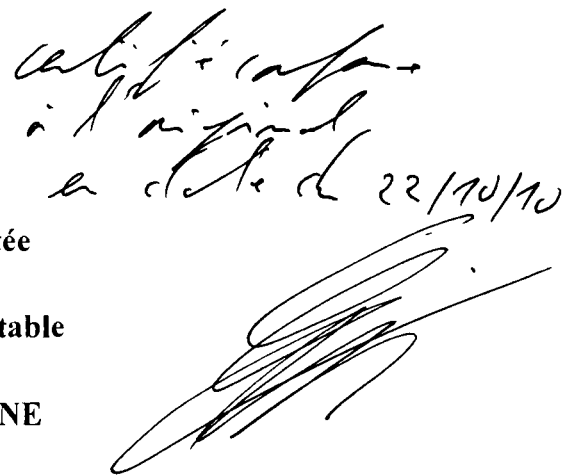 certifié conforme
à l'original
en date du 22/10/10
tée
table
NE